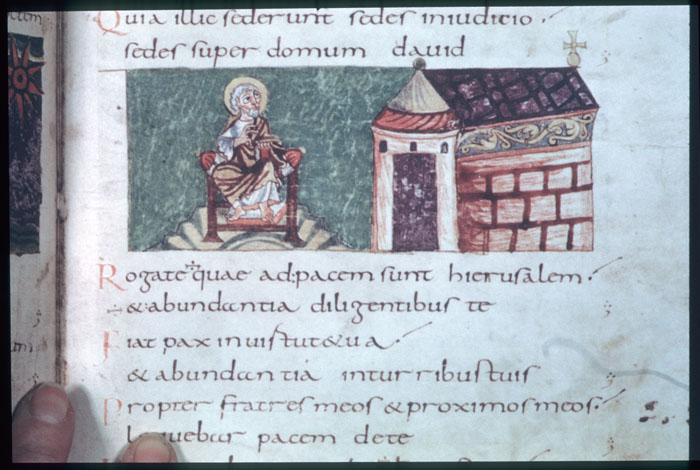 Quia illic sederunt sedes iniudicio.
sedes super domum david
Rogate quae ad pacem sunt hierusalem.
& abundantia diligentibus te
Fiat pax in uirtute tua
& abundantia inturribus tuis
Propter fratres meos & proximos meos.
loquebar pacem dete